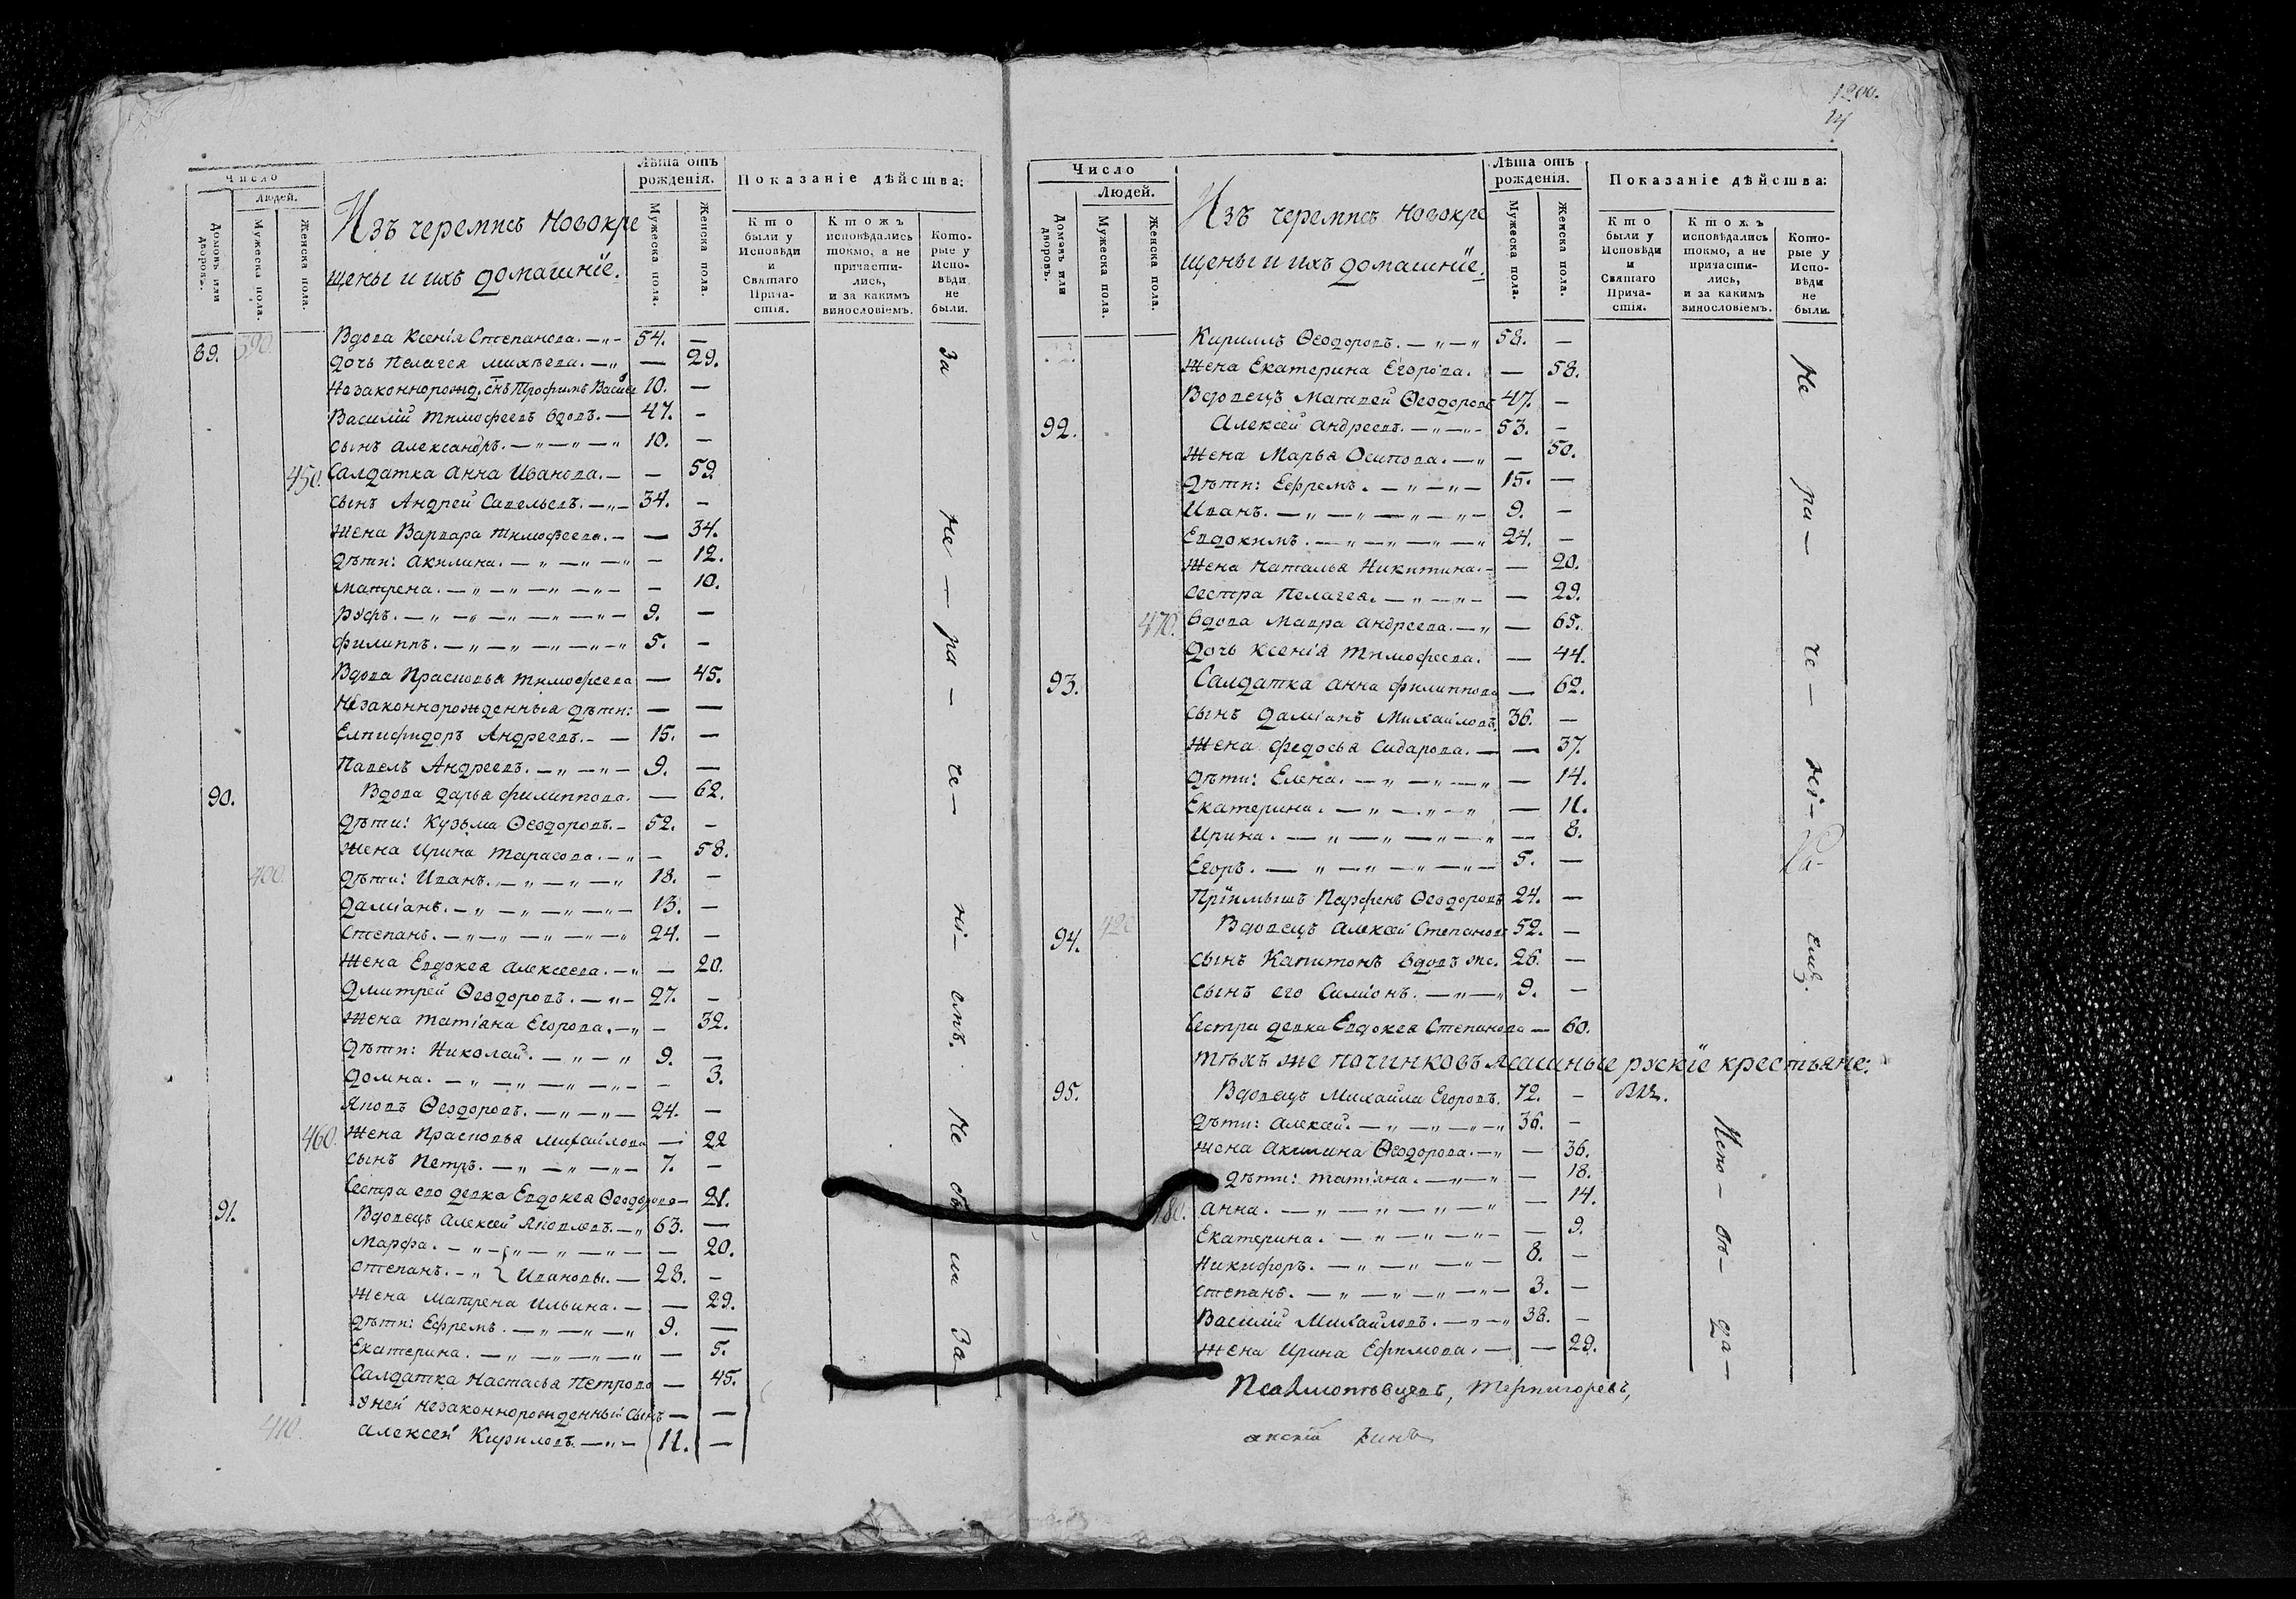 1200.
14
Число
Людей.
Домовъ или дворовъ.
Мужеска пола.
Женска пола.
Изъ черемисъ новокре
щены и ихъ домашнїе.
Лѣта отъ рожденія.
Мужеска пола.
Женска пола.
Показаніе дѣйства:
Кто были у Исповѣди и Святаго Прича-стія.
Ктожъ исповѣдались токмо, а не причасти-лись, и за какимъ винословіемъ.
Кото-рые у Испо-вѣди не были.
390.
Вдова Ксенія Степанова. — „ - 54. —
89. дочь Пелагея Михѣева. — „ — 29.
Незаконнорожд. снъ Трофимъ Василе 10. —
Василій Тимофеевъ вдовъ. — 47. -
сынъ Александръ. — „ — „ — „ 10. —
450. Салдатка Анна Иванова. — — 52
сынъ Андрей Савельевъ. — „ — 34. -
жена Варвара Тимофеева. — — 34.
дѣти: Акилина. — „ — „ — „ — 12.
Матрена. — „ — „ — „ — „ — — 10.
Руфъ. — „ — „ — „ — „ — „ — 9. —
Филиппъ. — „ — „ — „ — „ — „ 5. -
Вдова Прасковья Тимофеева — 45.
Незаконнорожденныя дѣти: — —
Елпифидоръ Андреевъ. — — 15. —
Павелъ Андреевъ. — „ — „ — 9. —
90. Вдова Дарья Филиппова. — 62.
дѣти: Кузьма Ѳеодоровъ. — 52. -
жена Ирина Тарасова. — „ — 58.
400. дѣти: Иванъ. — „ — „ — „ 18. -
Даміанъ. — „ — „ — „ — „ — 13. -
Степанъ. — „ — „ — „ — „ — „ 24. -
жена Евдокея Алексеева. — „ — 20.
Дмитрей Ѳеодоровъ. — „ — 27. -
жена Татіяна Егорова. — „ — 32.
дѣти: Николай. — „ — „ 9. —
Домна. — „ — „ — „ — „ — — 3.
Яковъ Ѳеодоровъ. — „ — „ — 24. —
460. жена Прасковья Михайлова — 22
сынъ Петръ. — „ — „ — „ — 7. -
Сестра его девка Евдокея Ѳеодорова — 21.
91. Вдовецъ Алексей Яковлевъ. — „ 63. —
Марфа. — „ — „ — „ — „ — — 20.
Степанъ. — „ } Ивановы. — 28. -
жена Матрена Ильина. — — 29.
дѣти: Ефремъ. — „ — „ — „ 9. —
Екатерина. — „ — „ — „ — „ — 5.
Салдатка Настасья Петрова — 45.
У ней незаконнорожденный сынъ — —
410. Алексей Кириловъ. — „ — 11. —
За не — ра — че — ні — емъ.
Не бы ли За
Число
Людей.
Домовъ или дворовъ.
Мужеска пола.
Женска пола.
Изъ черемисъ новокре
щены и ихъ домашнїе.
Лѣта отъ рожденія.
Мужеска пола.
Женска пола.
Показаніе дѣйства:
Кто были у Исповѣди и Святаго Прича-стія.
Ктожъ исповѣдались токмо, а не причасти-лись, и за какимъ винословіемъ.
Кото-рые у Испо-вѣди не были.
Кириллъ Ѳеодоровъ. — „ — „ 58. —
жена Екатерина Егорова. — 58.
Вдовецъ Матвей Ѳеодоровъ 47. —
92. Алексей Андреевъ. — „ — „ - 53. -
жена Марья Осипова. — „ — 50.
дѣти: Ефремъ. — „ — „ — 15. —
Иванъ. — „ — „ — „ — „ — 9. —
Евдокимъ. — „ — „ — „ — „ 24. —
жена Наталья Никитина. — — 20.
сестра Пелагея. — „ — „ — — 29.
470. вдова Мавра Андреева. — „ — 65.
дочь Ксенія Тимофеева. — 44.
93. Салдатка Анна Филиппова — 62.
сынъ Даміанъ Михайловъ 36. —
жена Федосья Сидарова. — — 37.
дѣти: Елена. — „ — „ — „ — 14.
Екатерина. — „ — „ — „ — 11.
Ирина. — „ — „ — „ — „ — 8.
Егоръ. — „ — „ — „ — „ — 5. —
Прїимышъ Парфенъ Ѳеодоровъ 24. —
420
94. Вдовецъ Алексей Степановъ 52. —
сынъ Капитонъ вдовъ же. 26. —
сынъ его Симіонъ. — „ — „ 9. —
Сестра девка Евдокея Степанова — 60.
тѣхъ же починковъ ясашные рускїе крестьяне:
95. Вдовецъ Михайла Егоровъ. 72. -
дѣти: Алексей. — „ — „ — „ — „ 36. -
жена Акилина Ѳеодорова. — „ — 36.
дѣти: Татіяна. — „ — „ — 18.
480. Анна. — „ — „ — „ — „ — 14.
Екатерина. — „ — „ — „ — — 9.
Никифоръ. — „ — „ — „ — 8. -
Степанъ. — „ — „ — „ — „ — 3. -
Василій Михайловъ. — „ — „ 38. -
жена Ирина Ефимова. — — 29.
Не ра — че — ні — емъ.
Испо — вѣ — да —